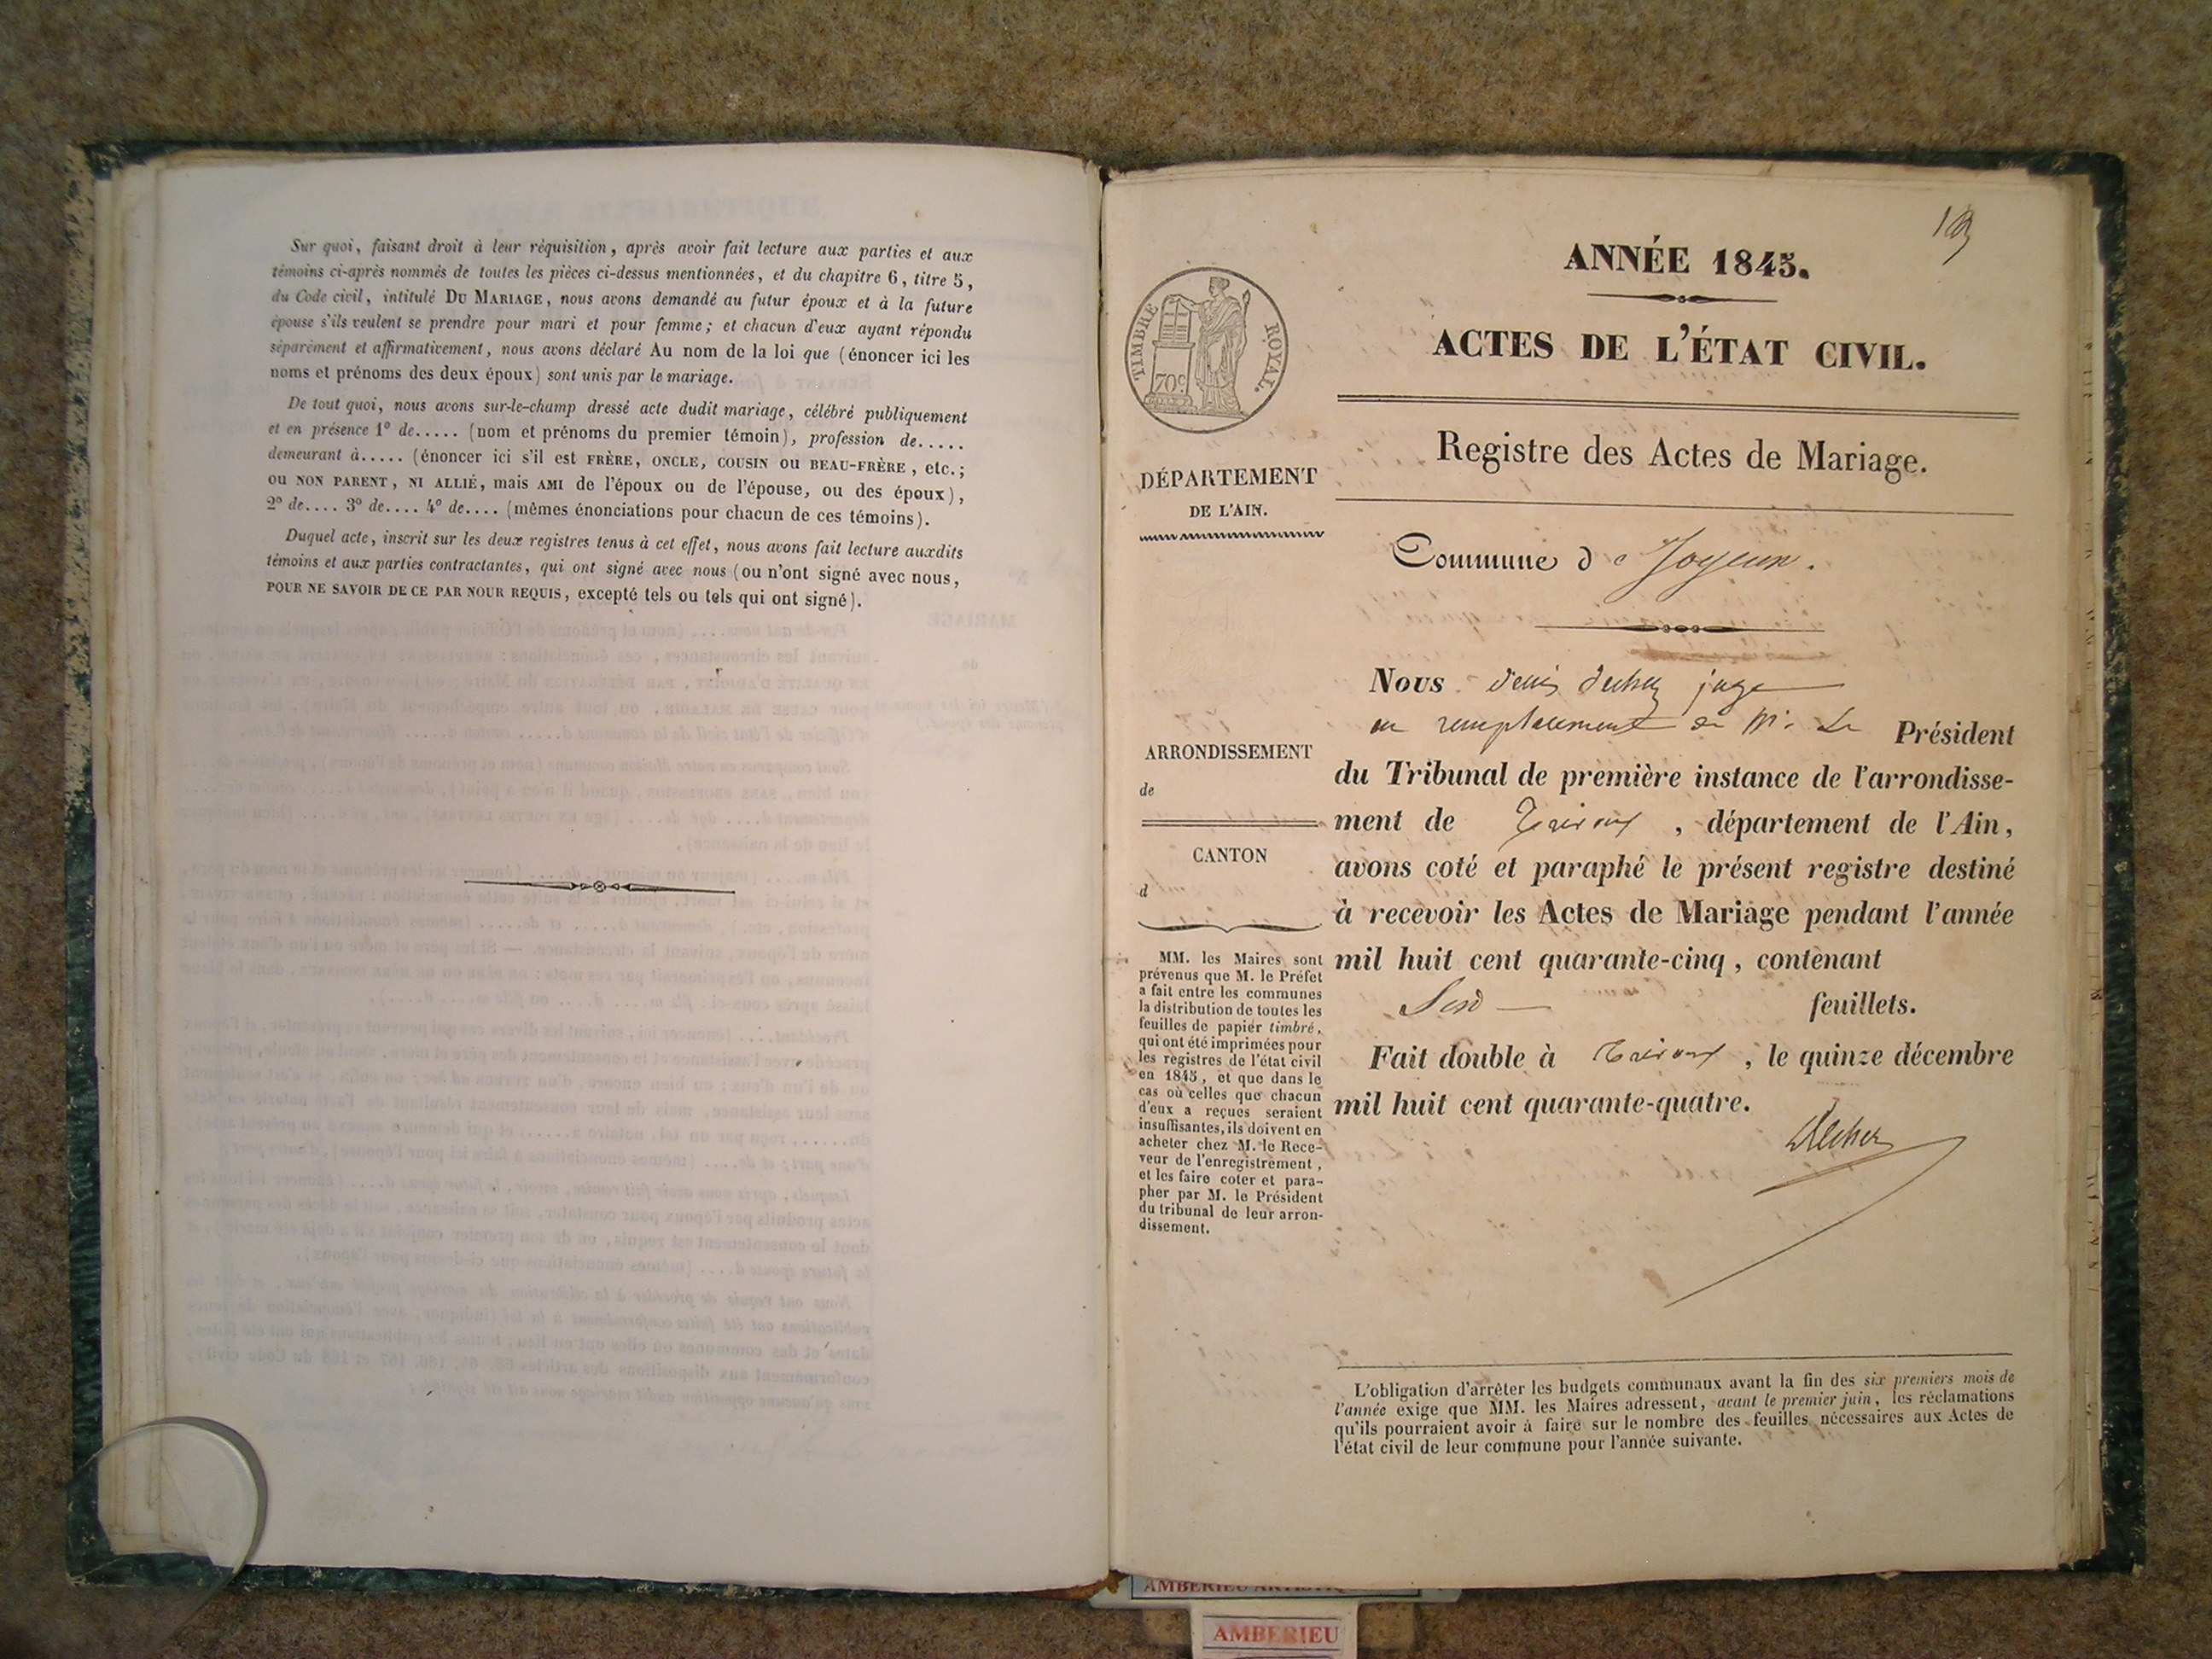 Sur quoi, faisant droit à leur réquisition, après avoir fait lecture aux parties et aux
témoins ci-après nommés de toutes les pièces ci-dessus mentionnées, et du chapitre 6, titre 5,
du Code civil, intitulé DU MARIAGE, nous avons demandé au futur époux et à la future
épouse s'ils veulent se prendre pour mari et pour femme; et chacun d'eux ayant répondu
séparément et affirmativement, nous avons déclaré Au nom de la loi que (énoncer ici les
noms et prénoms des deux époux) sont unis par le mariage.
De tout quoi, nous avons sur-le-champ dressé acte dudit mariage, célébré publiquement
et en présence 1° de..... (nom et prénoms du premier témoin), profession de.....
demeurant à..... (énoncer ici s'il est FRÈRE, ONCLE, COUSIN OU BEAU-FRÈRE, etc.;
ou NON PARENT, NI ALLIÉ, mais AMI de l'époux ou de l'épouse, ou des époux),
2° de.... 3° de.... 4° de.... (mêmes énonciations pour chacun de ces témoins).
Duquel acte, inscrit sur les deux registres tenus à cet effet, nous avons fait lecture auxdits
témoins et aux parties contractantes, qui ont signé avec nous (ou n'ont signé avec nous,
POUR NE SAVOIR DE CE PAR NOUR REQUIS, excepté tels ou tels qui ont signé).
ANNÉE 1845.
ACTES DE L'ÉTAT CIVIL.
TIMBRE ROYAL.
70c
Registre des Actes de Mariage.
DÉPARTEMENT
DE L'AIN.
Commune de Joyeux.
Nous denis juge
en remplacement de Mr. Le Président
du Tribunal de première instance de l'arrondisse-
ment de Trévoux, département de l'Ain,
avons coté et paraphé le présent registre destiné
à recevoir les Actes de Mariage pendant l'année
mil huit cent quarante-cinq, contenant
feuillets.
Fait double à Trévoux, le quinze décembre
mil huit cent quarante-quatre.
ARRONDISSEMENT
de
CANTON
d
MM. les Maires sont
prévenus que M. le Préfet
a fait entre les communes
la distribution de toutes les
feuilles de papier timbré,
qui ont été imprimées pour
les registres de l'état civil
en 1845, et que dans le
cas où celles que chacun
d'eux a reçues seraient
insuffisantes, ils doivent en
acheter chez M. le Rece-
veur de l'enregistrement,
et les faire coter et para-
pher par M. le Président
du tribunal de leur arron-
dissement.
L'obligation d'arrêter les budgets communaux avant la fin des six premiers mois de
l'année exige que MM. les Maires adressent, avant le premier juin, les réclamations
qu'ils pourraient avoir à faire sur le nombre des feuilles nécessaires aux Actes de
l'état civil de leur commune pour l'année suivante.
AMBERIEU